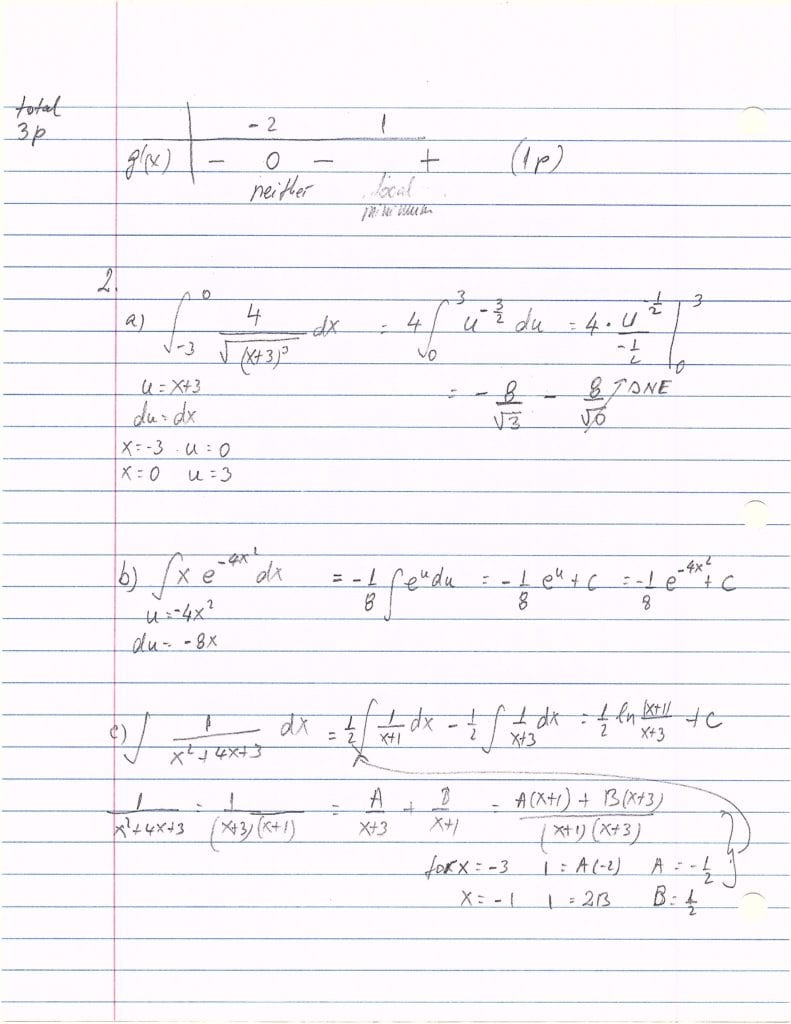 total
3p
-2 1
g'(x) - 0 - + (1p)
neither local
minimum
2.
a) ∫_{-3}^{0} 4/√(x+3)³ dx = 4 ∫_{0}^{3} u^{-3/2} du = 4 · u^{-1/2}/(-1/2) |_{0}^{3}
u = x+3 = - 8/√3 - 8/√0 ↗ DNE
du = dx
x = -3 u = 0
x = 0 u = 3
b) ∫ x e^{-4x²} dx = -1/8 ∫ e^u du = -1/8 e^u + C = -1/8 e^{-4x²} + C
u = -4x²
du = -8x
c) ∫ 1/(x²+4x+3) dx = 1/2 ∫ 1/(x+1) dx - 1/2 ∫ 1/(x+3) dx = 1/2 ln |x+1|/(x+3) + C
1/(x²+4x+3) = 1/((x+3)(x+1)) = A/(x+3) + B/(x+1) = (A(x+1) + B(x+3))/((x+1)(x+3))
for x = -3 1 = A(-2) A = -1/2
x = -1 1 = 2B B = 1/2